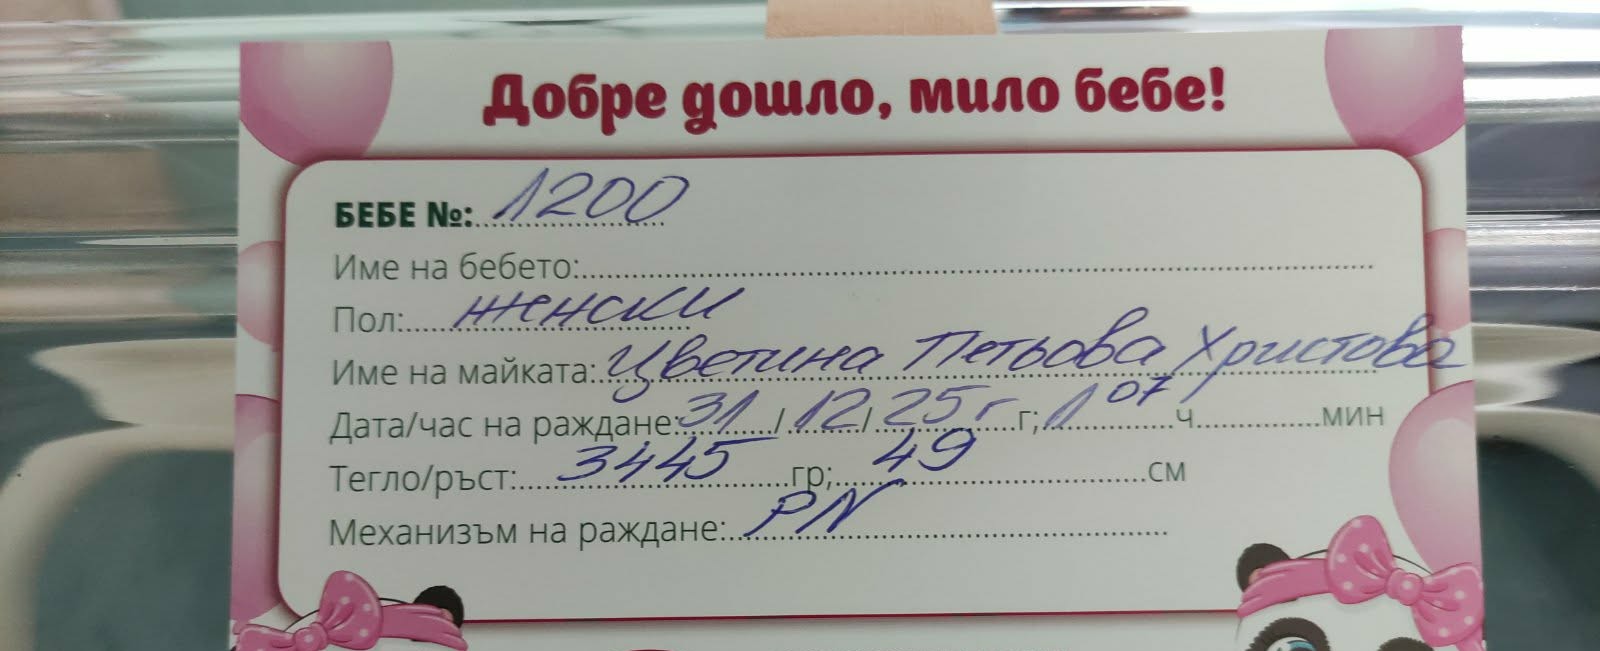 Добре дошло, мило бебе!
БЕБЕ №: 1200
Име на бебето:
Пол: женски
Име на майката: Цветина Петьова Христова
Дата/час на раждане: 31 / 12 / 25 г г; 1 07 ч. мин
Тегло/ръст: 3445 гр; 49 см
Механизъм на раждане: PN